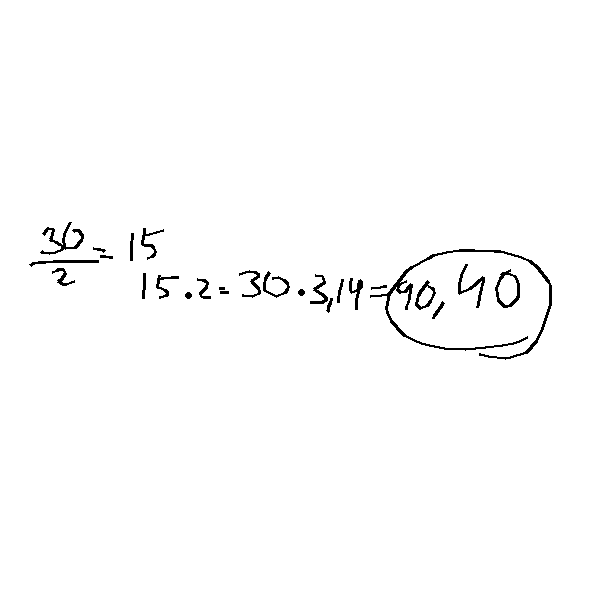 30/2 = 15
15 · 2 = 30 · 3,14 = 90, 40